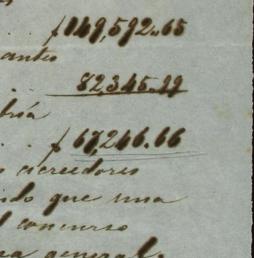 ƒ149,592..65
antes
82,345..99
bría
ƒ 67,246..66
s acreedores
ido que una
l concurso
general